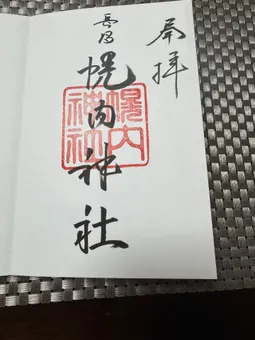 奉拝
幌内神社
幌内
神社